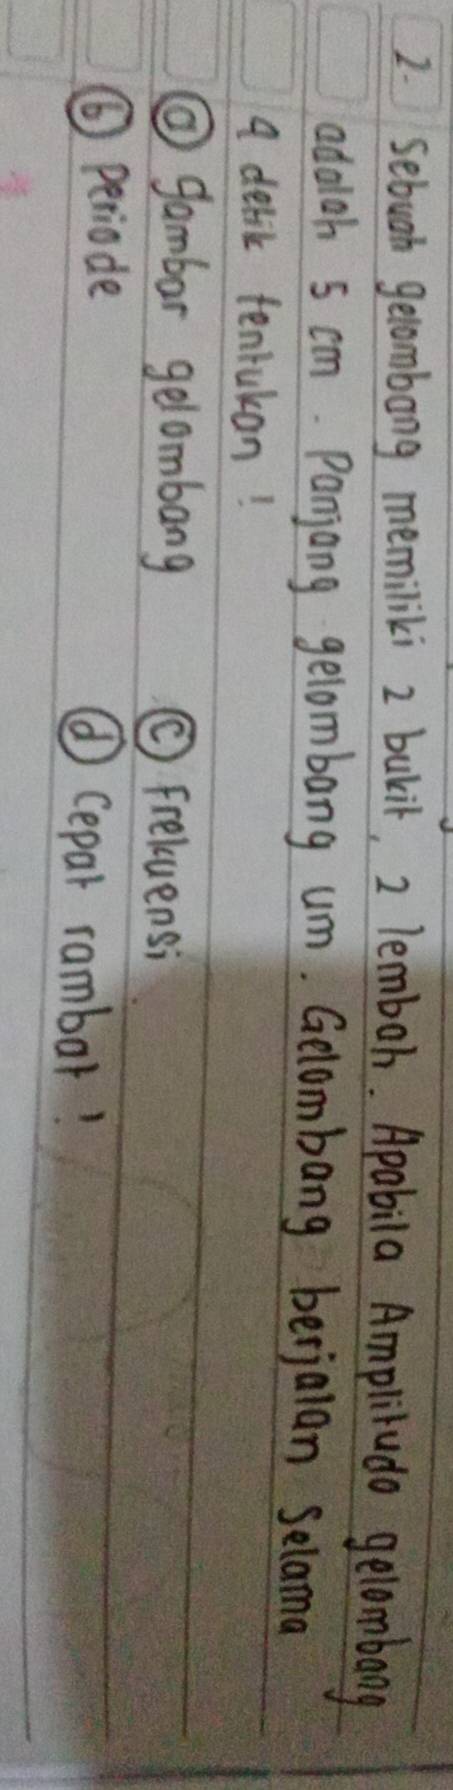 2. Sebuah gelombang memiliki 2 bukit, 2 lembah. Apabila Amplitudo gelombang
adalah 5 cm. Panjang gelombang um. Gelombang berjalan selama
4 detik tentukan!
ⓐ gambar gelombang ⓒ Frekuensi
ⓑ Periode ⓓ Cepat rambat!